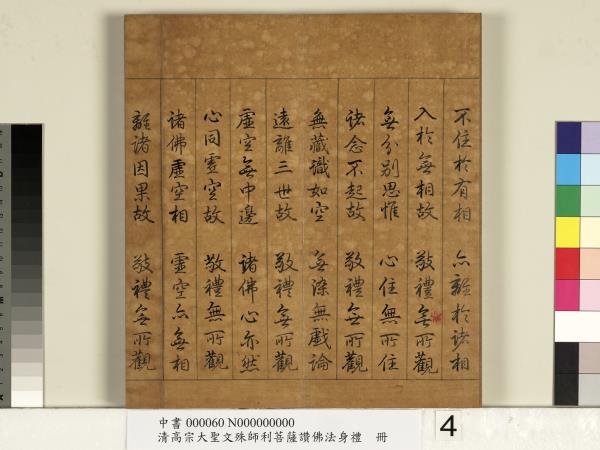 不住於有相　亦離於諸相
入於無相故　敬禮無所觀
無分別思惟　心住無所住
諸念不起故　敬禮無所觀
無藏識如空　無染無戲論
遠離三世故　敬禮無所觀
虛空無中邊　諸佛心亦然
心同虛空故　敬禮無所觀
諸佛虛空相　虛空亦無相
離諸因果故　敬禮無所觀
中書 000060 N000000000
清高宗大聖文殊師利菩薩讚佛法身禮　冊
4